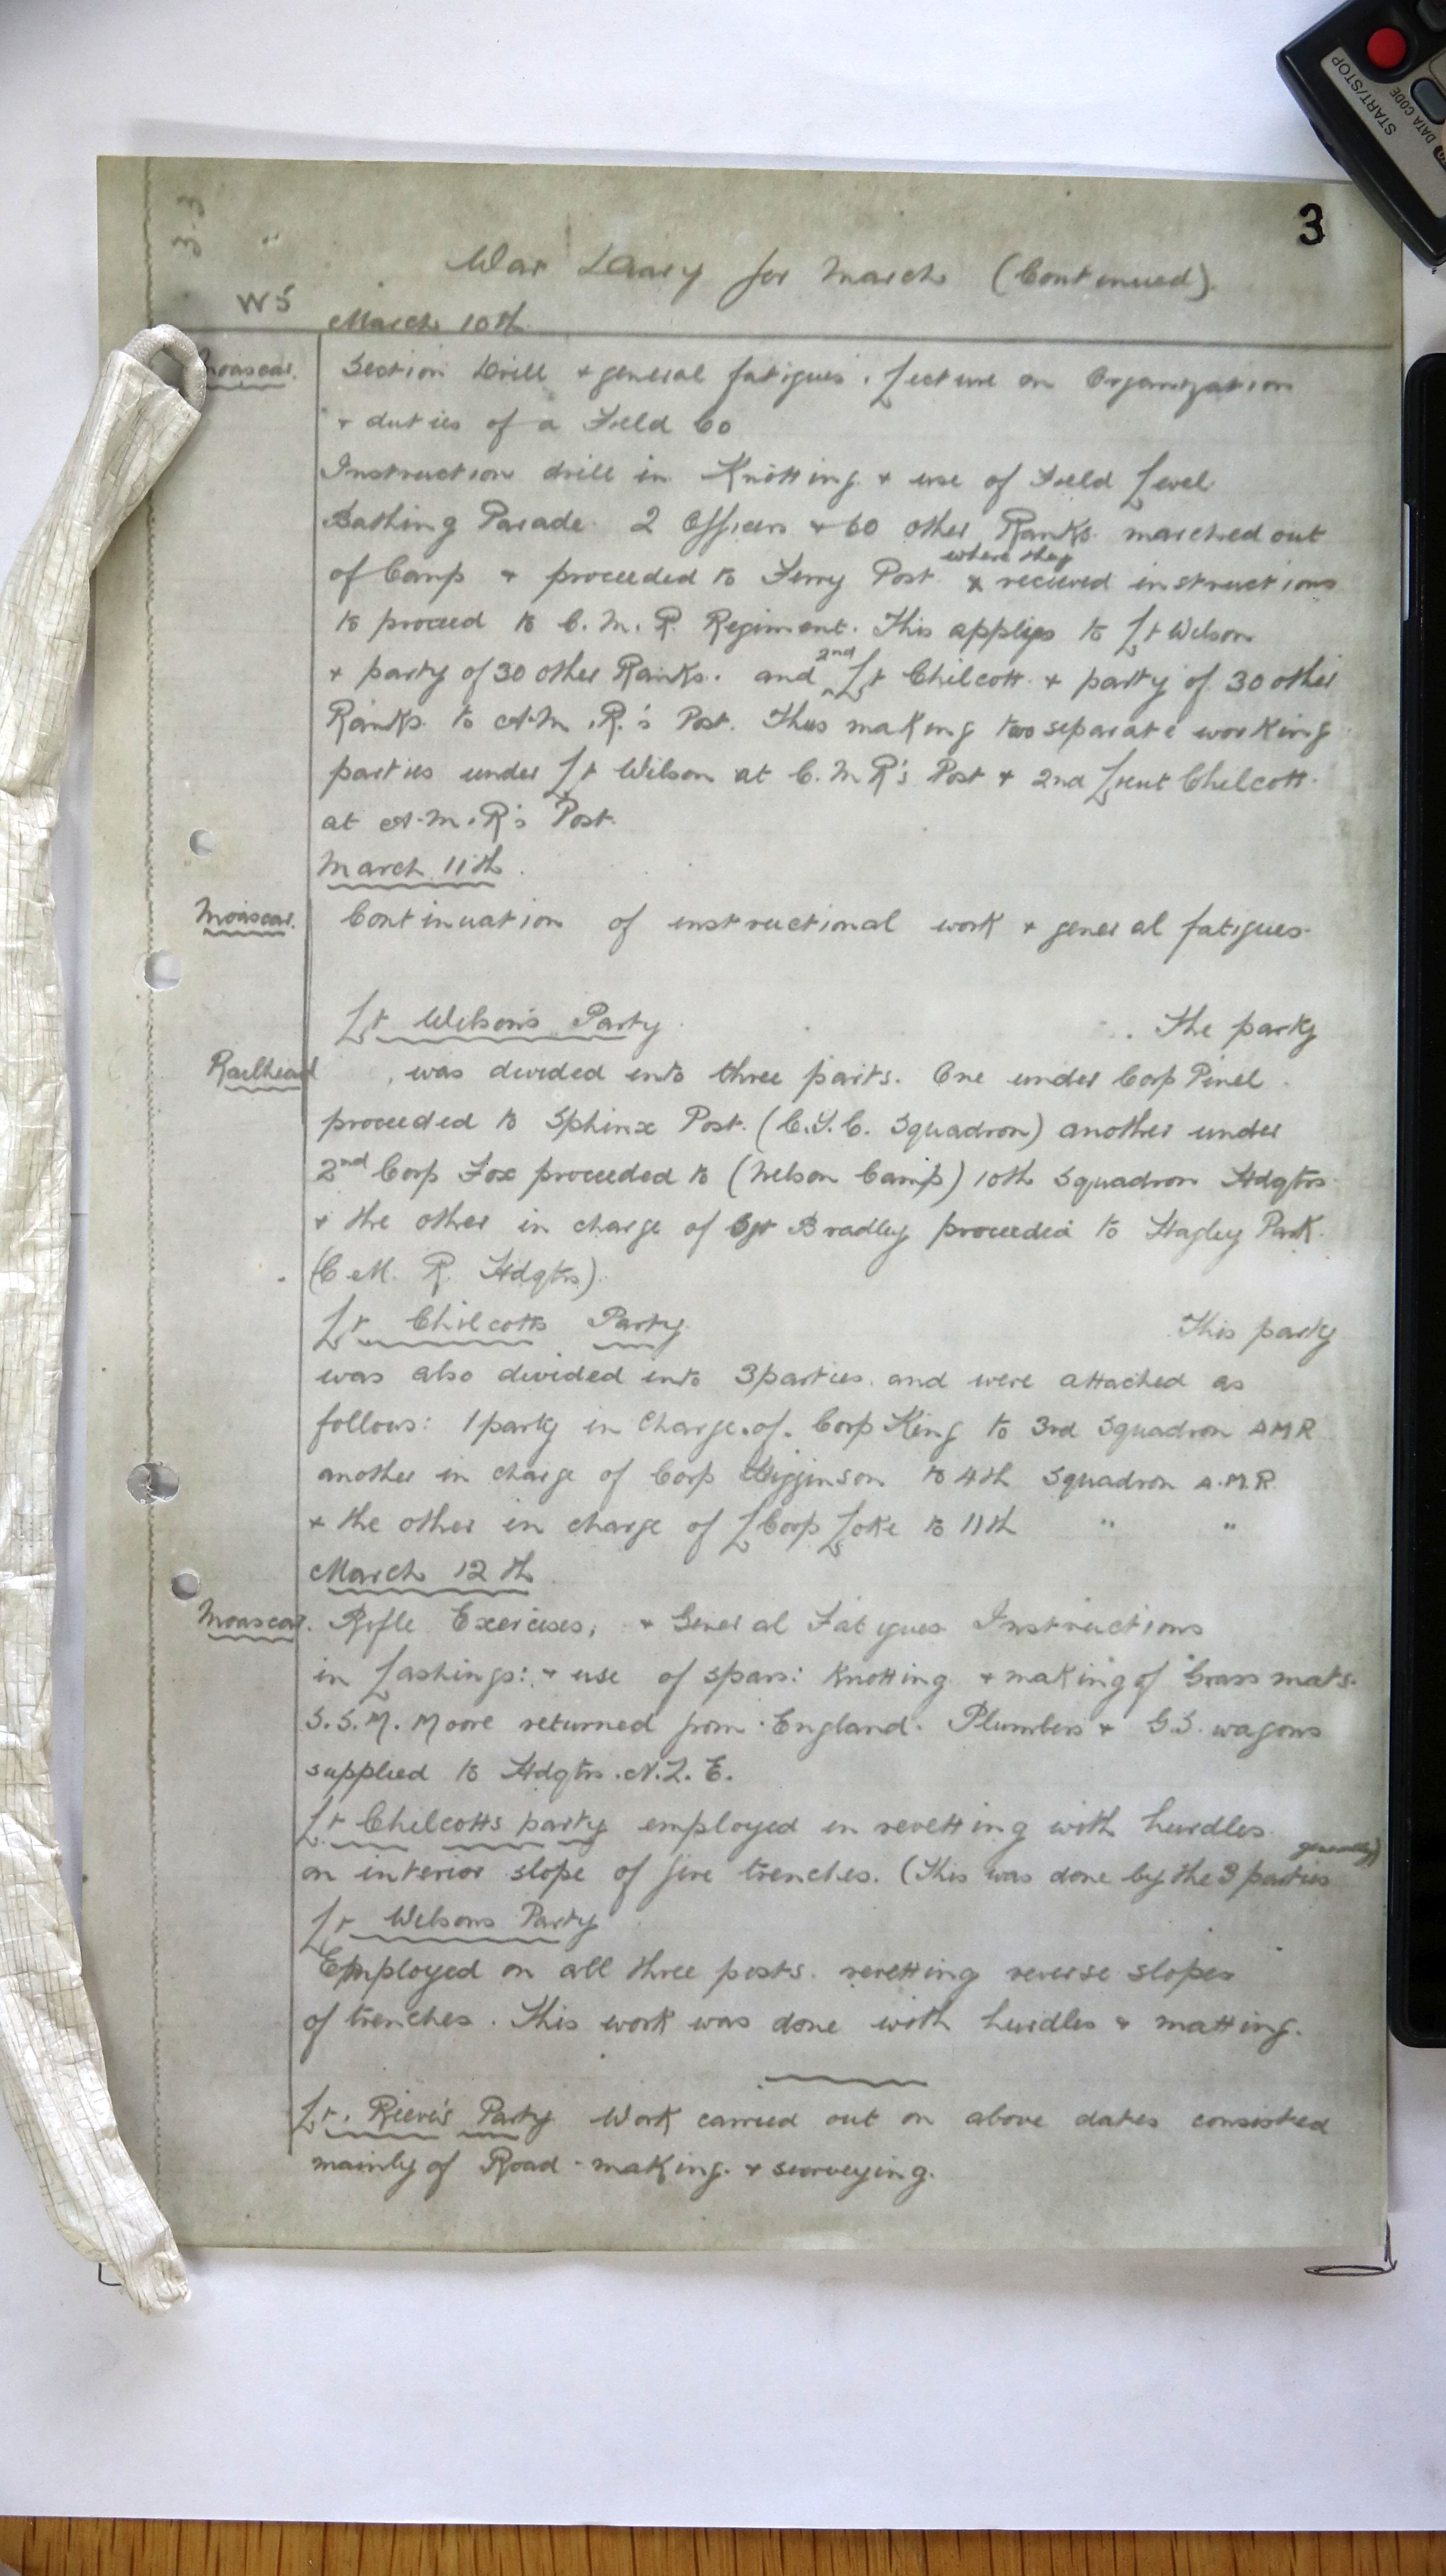 3
War Diary for March (Continued).
W5
March 10th
Moascar. Section Drill & general fatigues. Lecture on Organization
& duties of a Field Co
Instruction drill in Knotting & use of Field Level.
Bathing Parade. 2 Officers & 60 other Ranks marched out
where they
of Camp & proceeded to Ferry Post & recieved instructions
to proceed to C. M. R. Regiment. This applies to Lt Wilson
& party of 30 other Ranks. and 2nd Lt Chilcott & party of 30 other
Ranks to A.M.R.'s Post. Thus making two separate working
parties under Lt Wilson at C.M.R's Post & 2nd Lieut Chilcott
at A.M.R's Post.
March 11th.
Moascar. Continuation of instructional work & general fatigues.
Lt Wilson's Party. The party
Railhead was divided into three parts. One under Corp Pinel
proceeded to Sphinx Post. (C.Y.C. Squadron) another under
2nd Corp Fox proceeded to (Nelson Camp) 10th Squadron Hdqtrs.
& the other in charge of Sgt Bradley proceeded to Hagley Park.
(C.M. R. Hdqtrs).
Lt. Chilcotts Party. This party
was also divided into 3 parties. and were attached as
follows: 1 party in Charge.of. Corp King to 3rd Squadron AMR
another in charge of Corp Higginson to 4th Squadron A.M.R.
& the other in charge of LCorp Loke to 11th " "
March 12th
Moascar. Rifle Exercises, & General Fatigues Instructions
in Lashings: & use of spars: Knotting & making of Grass mats.
S.S.M. Moore returned from England. Plumbers & G.S. wagons
supplied to Hdqtrs. N.Z.E.
Lt Chilcotts party employed in revetting with hurdles
generally)
on interior slope of fire trenches. (This was done by the 3 parties
Lt. Wilsons Party
Employed on all three posts. revetting reverse slopes
of trenches. This work was done with hurdles & matting.
Lt. Rieve's Party Work carried out on above dates consisted
mainly of Road-making. & surveying.
START/STOP
DATA CODE